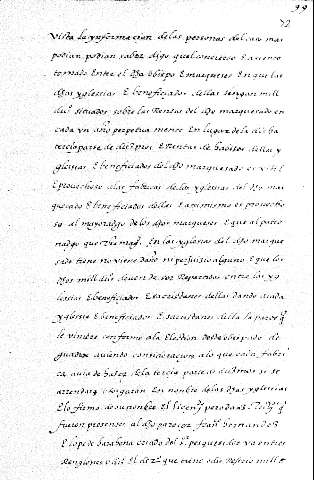 99
72
Vista la ynformacion de las personas del ca mas
podian podian saber digo que el concierto E a v eno
tomado Entre el dho obispo E marqueses En que las
dhas yglesias E beneficiados dellas tengan mill
du°s situados sobre las Rentas del dho marquesado en
cada un año perpetua mente En lugar de la dicha
tercia parte de diezmos E Rentas de
yglesias E beneficiados del dho marquesado es util
E provechoso a las fabricas de las yglesias del dho mar
quesado E beneficiados dellas E asimismo es provecho
so al mayoradgo de los dhos marqueses E que al patro
nadgo que En las yglesias del dho marque
sado tiene no viene daño ni perjuisio alguno E que los
dhos mill du°s deven de ser Repartidos entre las yg
lesias E beneficiados E sacristanes dellas dando a cada
yglesia E beneficiados E sacristanes della la parte q
le viniere conforme a la Eleccion deste obispado de
guadix aviendo consideracion a lo que cada fabri
ca avia de haber de la tercia parte de diezmos si se
arrendara En nombre de las dhas yglesias
E lo firmo de su nombre El licen° peñada t°s q
fueron presentes al dho parecer fran° hernandes
E lope de barahona criado del s° pesquesidor va entre
Renglones o diz El diz° que tiene